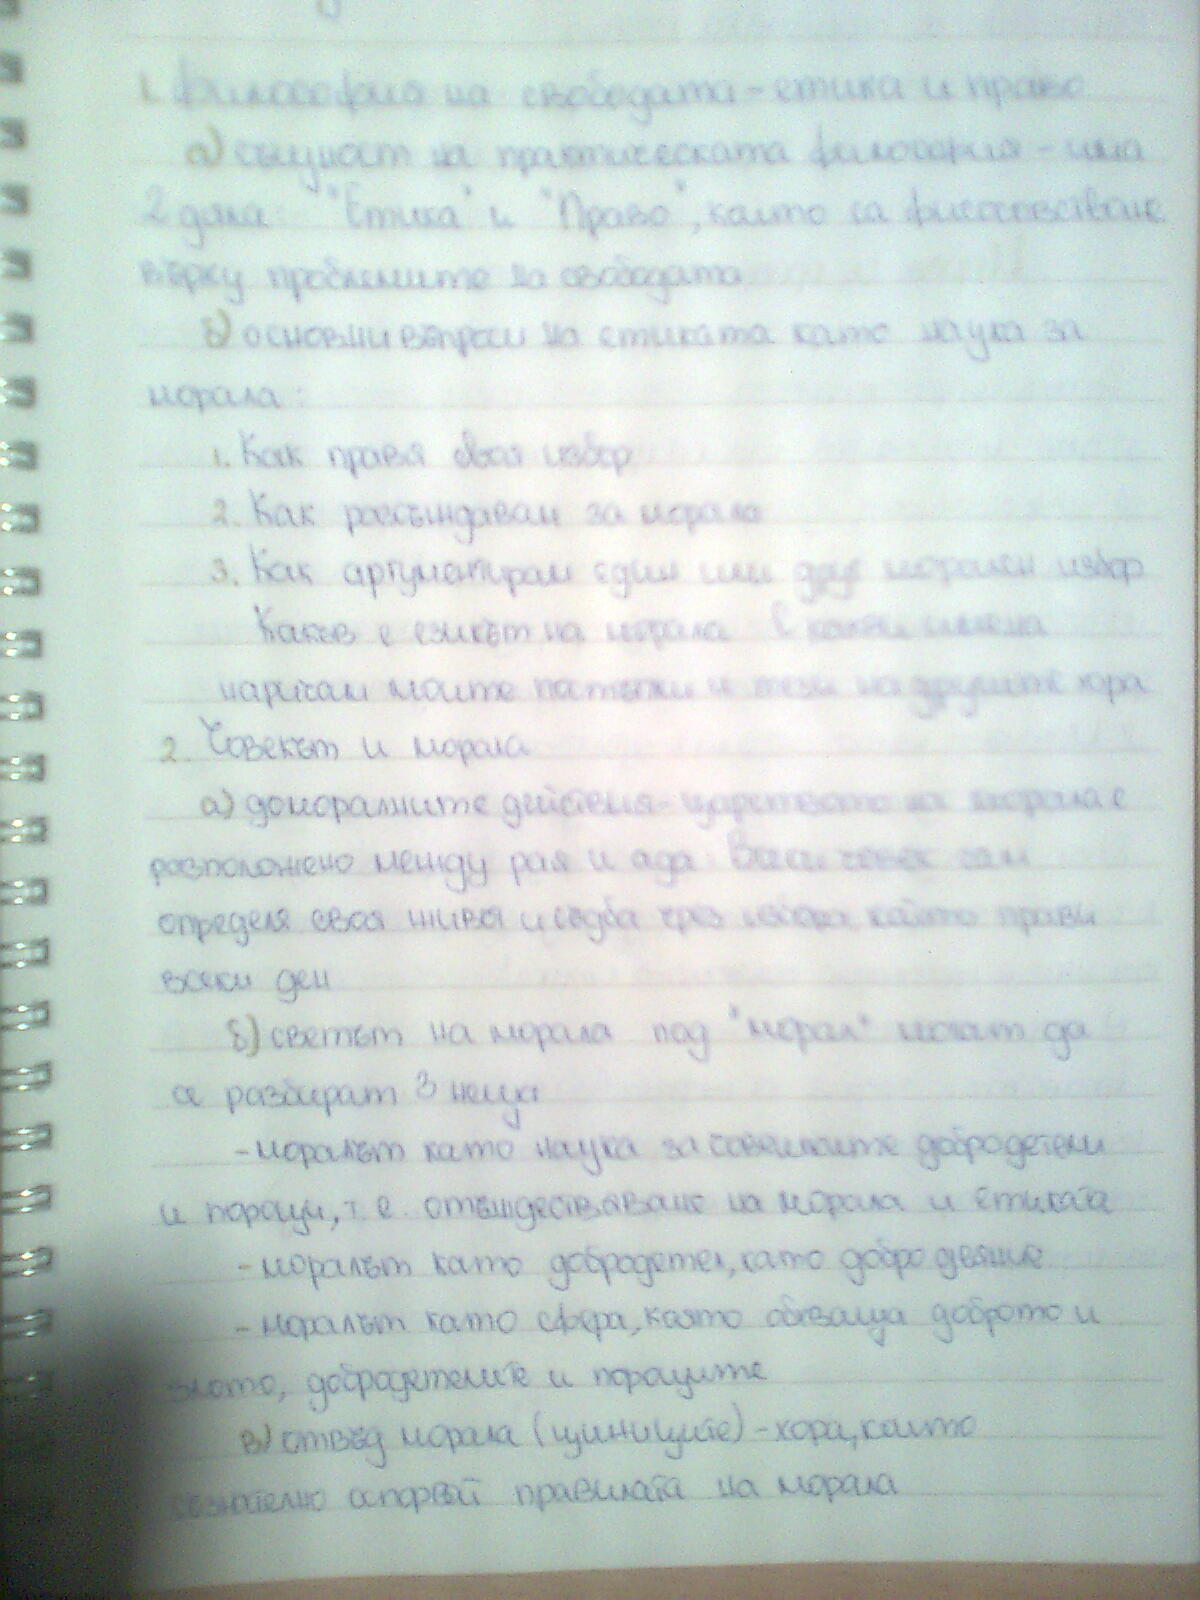 1. Философия на свободата - етика и право
а) същност на практическата философия - има
2 дяла: "Етика" и "Право", които са философстване
върху проблемите на свободата
б) основни въпроси на етиката като наука за
морала:
1. Как правя своя избор
2. Как разсъждавам за морала
3. Как аргументирам един или друг морален избор
Какъв е езикът на морала С какви имена
наричам моите постъпки и тези на другите хора
2. Човекът и морала
а) доморалните действия - царството на морала е
разположено между рая и ада. Всеки човек сам
определя своя живот и съдба чрез избора, който прави
всеки ден
б) светът на морала под "морал" могат да
се разбират 3 неща
- моралът като наука за човешките добродетели
и пороци, т.е. отъждествяване на морала и етиката
- моралът като добродетел, като добро деяние
- моралът като сфера, която обхваща доброто и
злото, добродетелите и пороците
в) отвъд морала (циниците) - хора, които
съзнателно оспорват правилата на морала